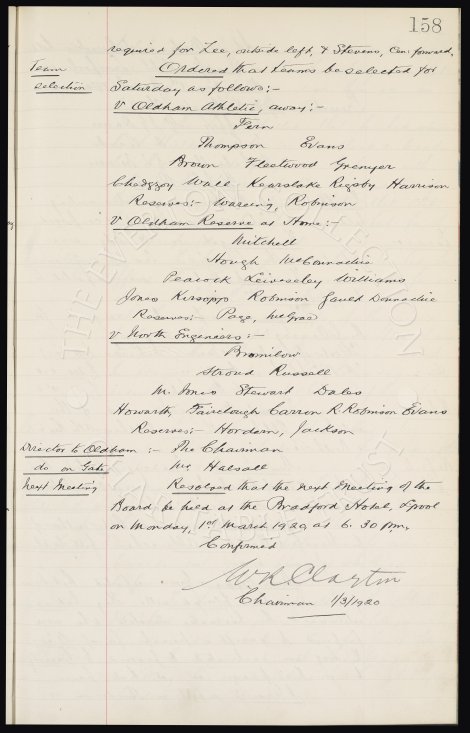 158
required for Lee, outside left, & Stevens, Cen: forward.
Team selection
Ordered that teams be selected for
Saturday as follows:-
V Oldham Athletic, away:-
Fern
Thompson Evans
Brown Fleetwood Grenyer
Chedgzoy Wall Kearslake Rigsby Harrison
Reserves:- Wareing, Robinson
V Oldham Reserve at Home:-
Mitchell
Hough McConnachie
Peacock Leivesley Williams
Jones Kirsopp Robinson Gauld Donnachie
Reserves:- Page, McGrae
V North Engineers:-
Bromilow
Stroud Russell
M. Jones Stewart Dales
Howarth, Fairclough Carron R. Robinson Evans
Reserves:- Hordern, Jackson
Director to Oldham :- The Chairman
do on Gate Mr. Halsall
Next Meeting
Resolved that the next meeting of the
Board be held at the Bradford Hotel, L'pool
on Monday, 1st March 1920, at 6.30 p.m.
Confirmed
W R Clayton
Chairman 1/3/1920
THE EVERTON COLLECTION